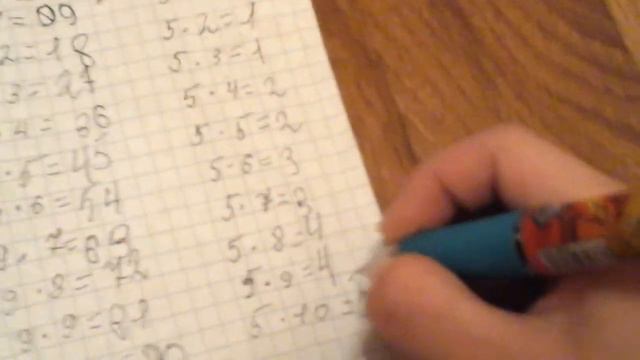 = 09
2 = 18
3 = 27
4 = 36
· 5 = 45
· 6 = 54
9 · 7 = 63
9 · 8 = 72
9 · 9 = 81
= 90
5 · 2 = 1
5 · 3 = 1
5 · 4 = 2
5 · 5 = 2
5 · 6 = 3
5 · 7 = 3
5 · 8 = 4
5 · 9 = 4
5 · 10 =